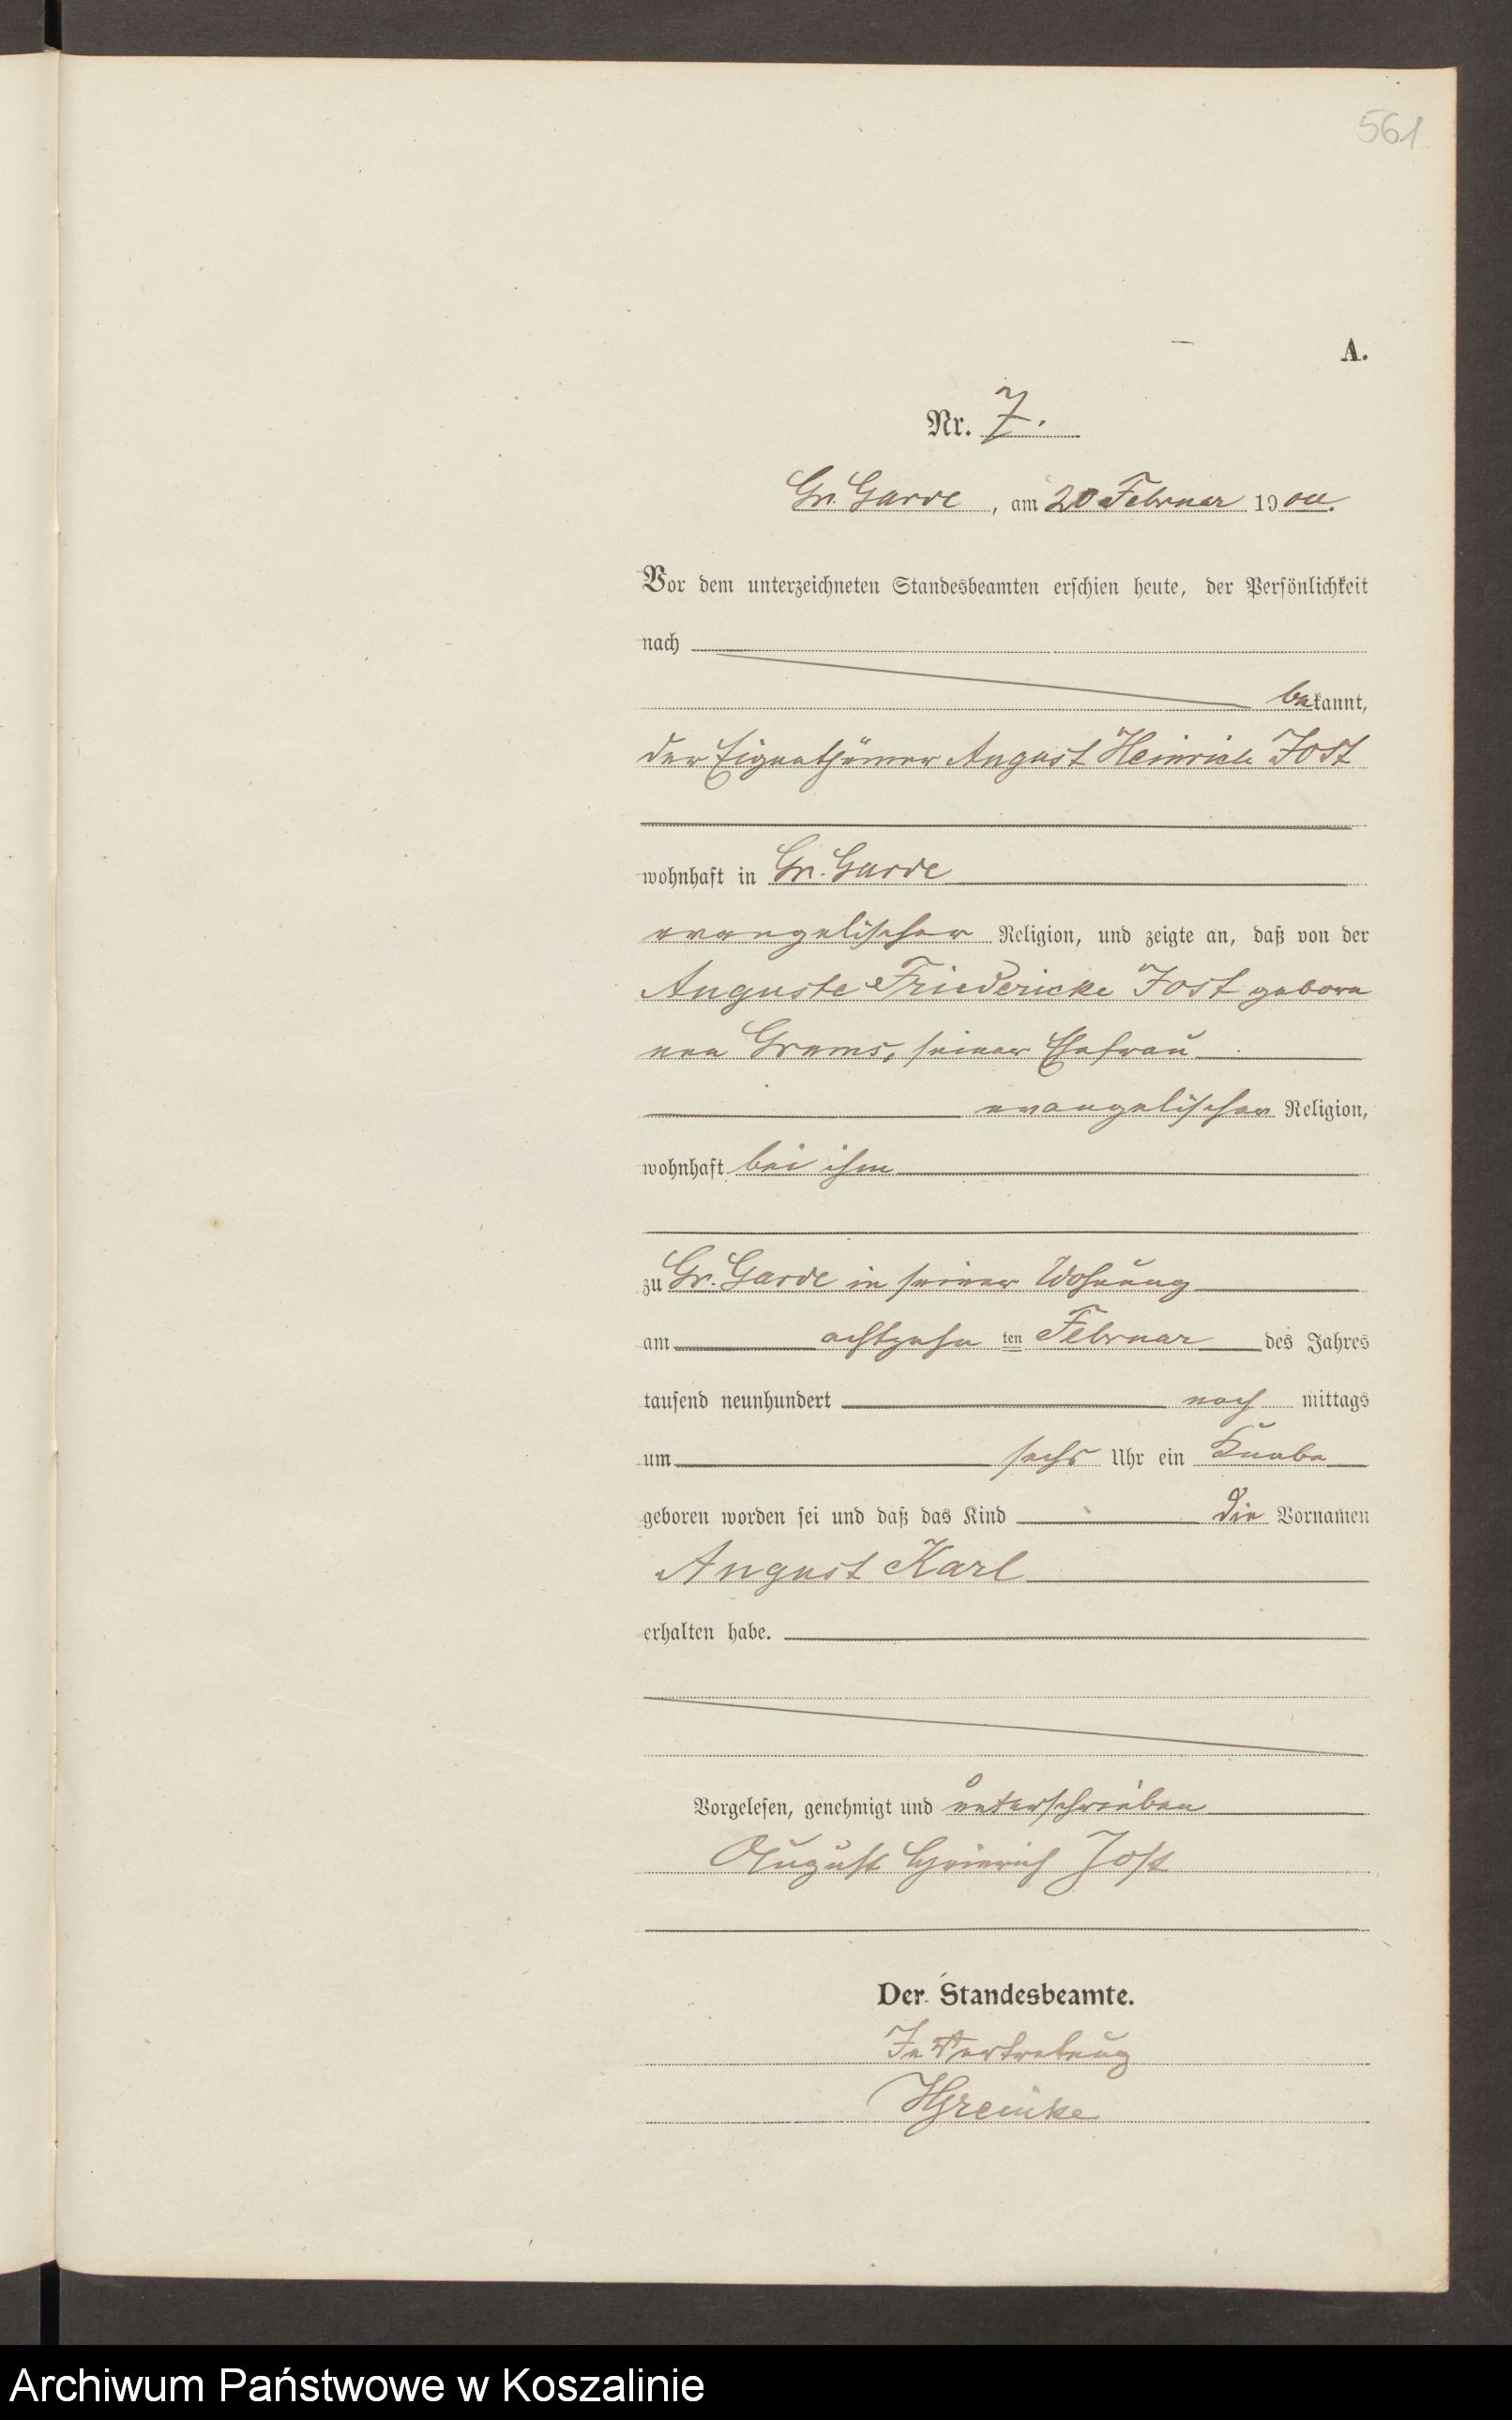 561
A.
Nr. 7.
Gr. Garde, am 20 Februar 1900.
Vor dem unterzeichneten Standesbeamten erschien heute, der Persönlichkeit
nach
bekannt,
der Eigenthümer August Heinrich Jost
wohnhaft in Gr. Garde
evangelischer Religion, und zeigte an, daß von der
Auguste Friedericke Jost gebore
nen Grams, seiner Ehefrau
evangelischer Religion,
wohnhaft bei ihm
zu Gr. Garde in seiner Wohnung
am achtzehn ten Februar des Jahres
tausend neunhundert nach mittags
um sechs Uhr ein Knabe
geboren worden sei und daß das Kind die Vornamen
August Karl
erhalten habe.
Vorgelesen, genehmigt und unterschrieben
August Heinrich Jost
Der Standesbeamte.
In Vertretung
Archiwum Państwowe w Koszalinie